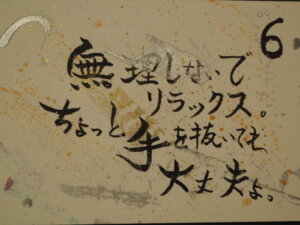 6
無理しないで
リラックス。
ちょっと
手を抜いても
大丈夫よ。